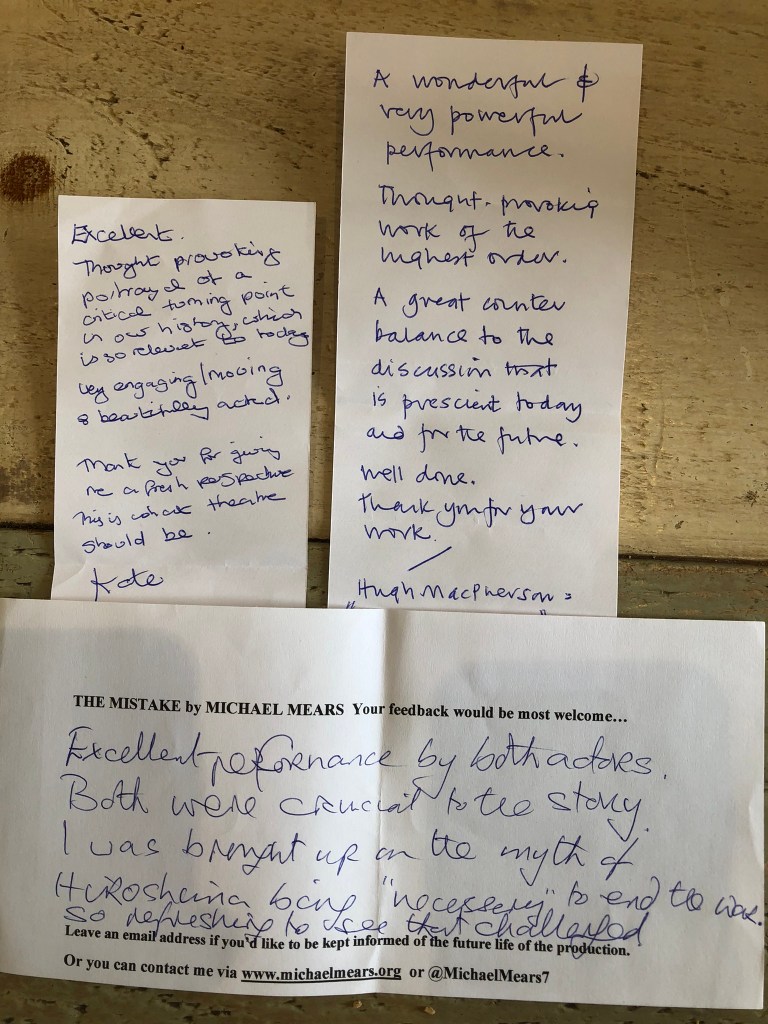 Excellent.
Thought provoking
portrayal of a
critical turning point
in our history, which
is so relevant to today
very engaging/moving
& beautifully acted.
Thank you for giving
me a fresh perspective
This is what theatre
should be.
Kate
A wonderful &
very powerful
performance.
Thought-provoking
work of the
highest order.
A great counter
balance to the
discussion that
is prescient today
and for the future.
Well done.
Thank you for your
work.
Hugh MacPherson
THE MISTAKE by MICHAEL MEARS Your feedback would be most welcome…
Excellent performance by both actors.
Both were crucial to the story.
I was brought up on the myth of
Hiroshima being "necessary" to end the war.
so refreshing to see that challenged
Leave an email address if you'd like to be kept informed of the future life of the production.
Or you can contact me via www.michaelmears.org or @MichaelMears7